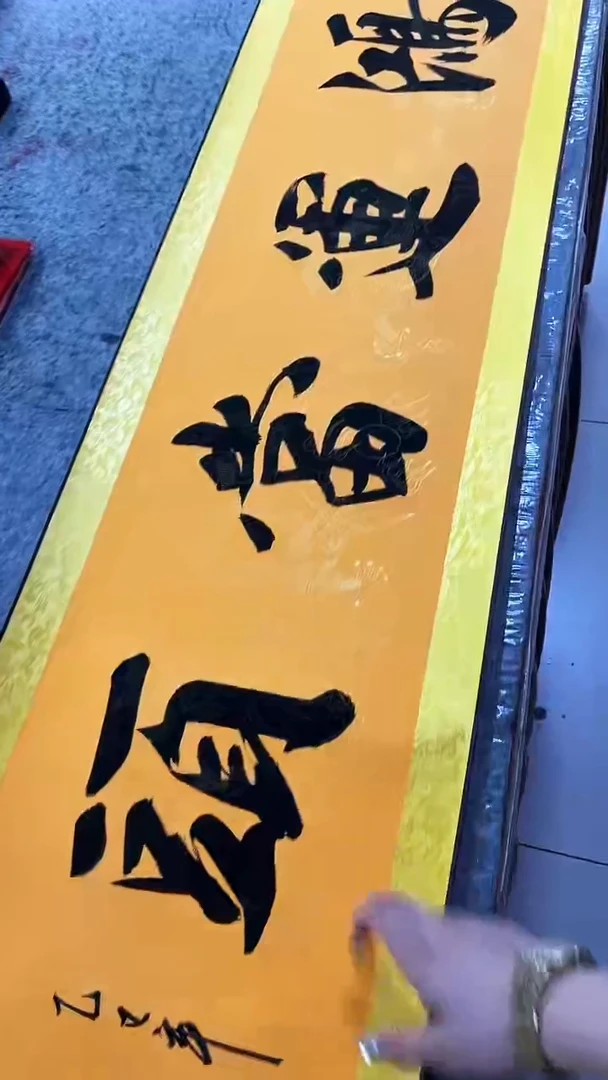 鴻運當頭
乙巳年